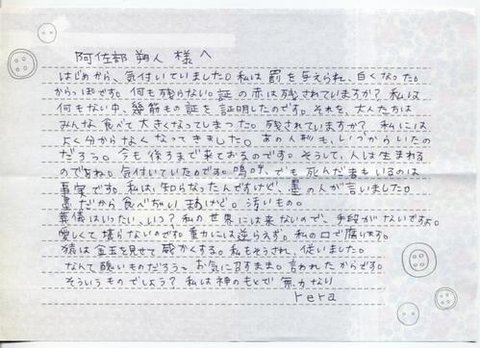 阿佐部 朔人 様へ
はじめから、気付いていました。私は罰を与えられ、白くなった。
からっぽです。何も残らない証の赤は残されていますか？私は
何もない中、幾筋もの証を証明したのです。それを、大人たちは
みんな食べて大きくなってしまった。残されていますか？私には
よく分からなくなってきました。あの人影も、いつからいたの
だろう。今も後ろまで来ておるのです。そうして、人は生まれる
のですね。気付いていたのです。嗚呼、でも死んだ者もいるのは
事実です。私は、知らなったんですけど、墨の人が言いました。
墨だから食べがい まぁけど。汚いもの。
葬儀はいったい、いつ？私の世界には来ないので、手段がないですよ。
愛しくて堪らないのです。重力には逆らえず。私の口で腐ります。
猿は金玉を見せて威かくする。私もそうされ、従いました。
なんて醜いものだろう。お気に召すまま。言われたからです。
そういうものでしょう？私は神のもとで 無力なり
rera